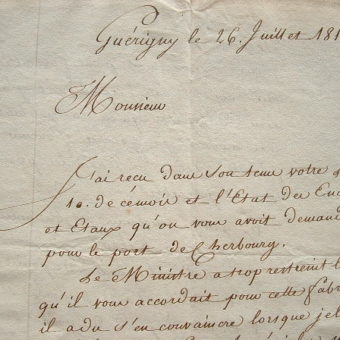 Guérigny le 26. Juillet 181
Monsieur
J'ai reçu dans son tems votre
10. de ce mois et l'Etat des Enc
et Etaux qu'on vous avoit demand
pour le port de Cherbourg.
Le Ministre a trop restreint l
qu'il vous accordait pour cette fabr
il a du s'en convaincre lorsque je l